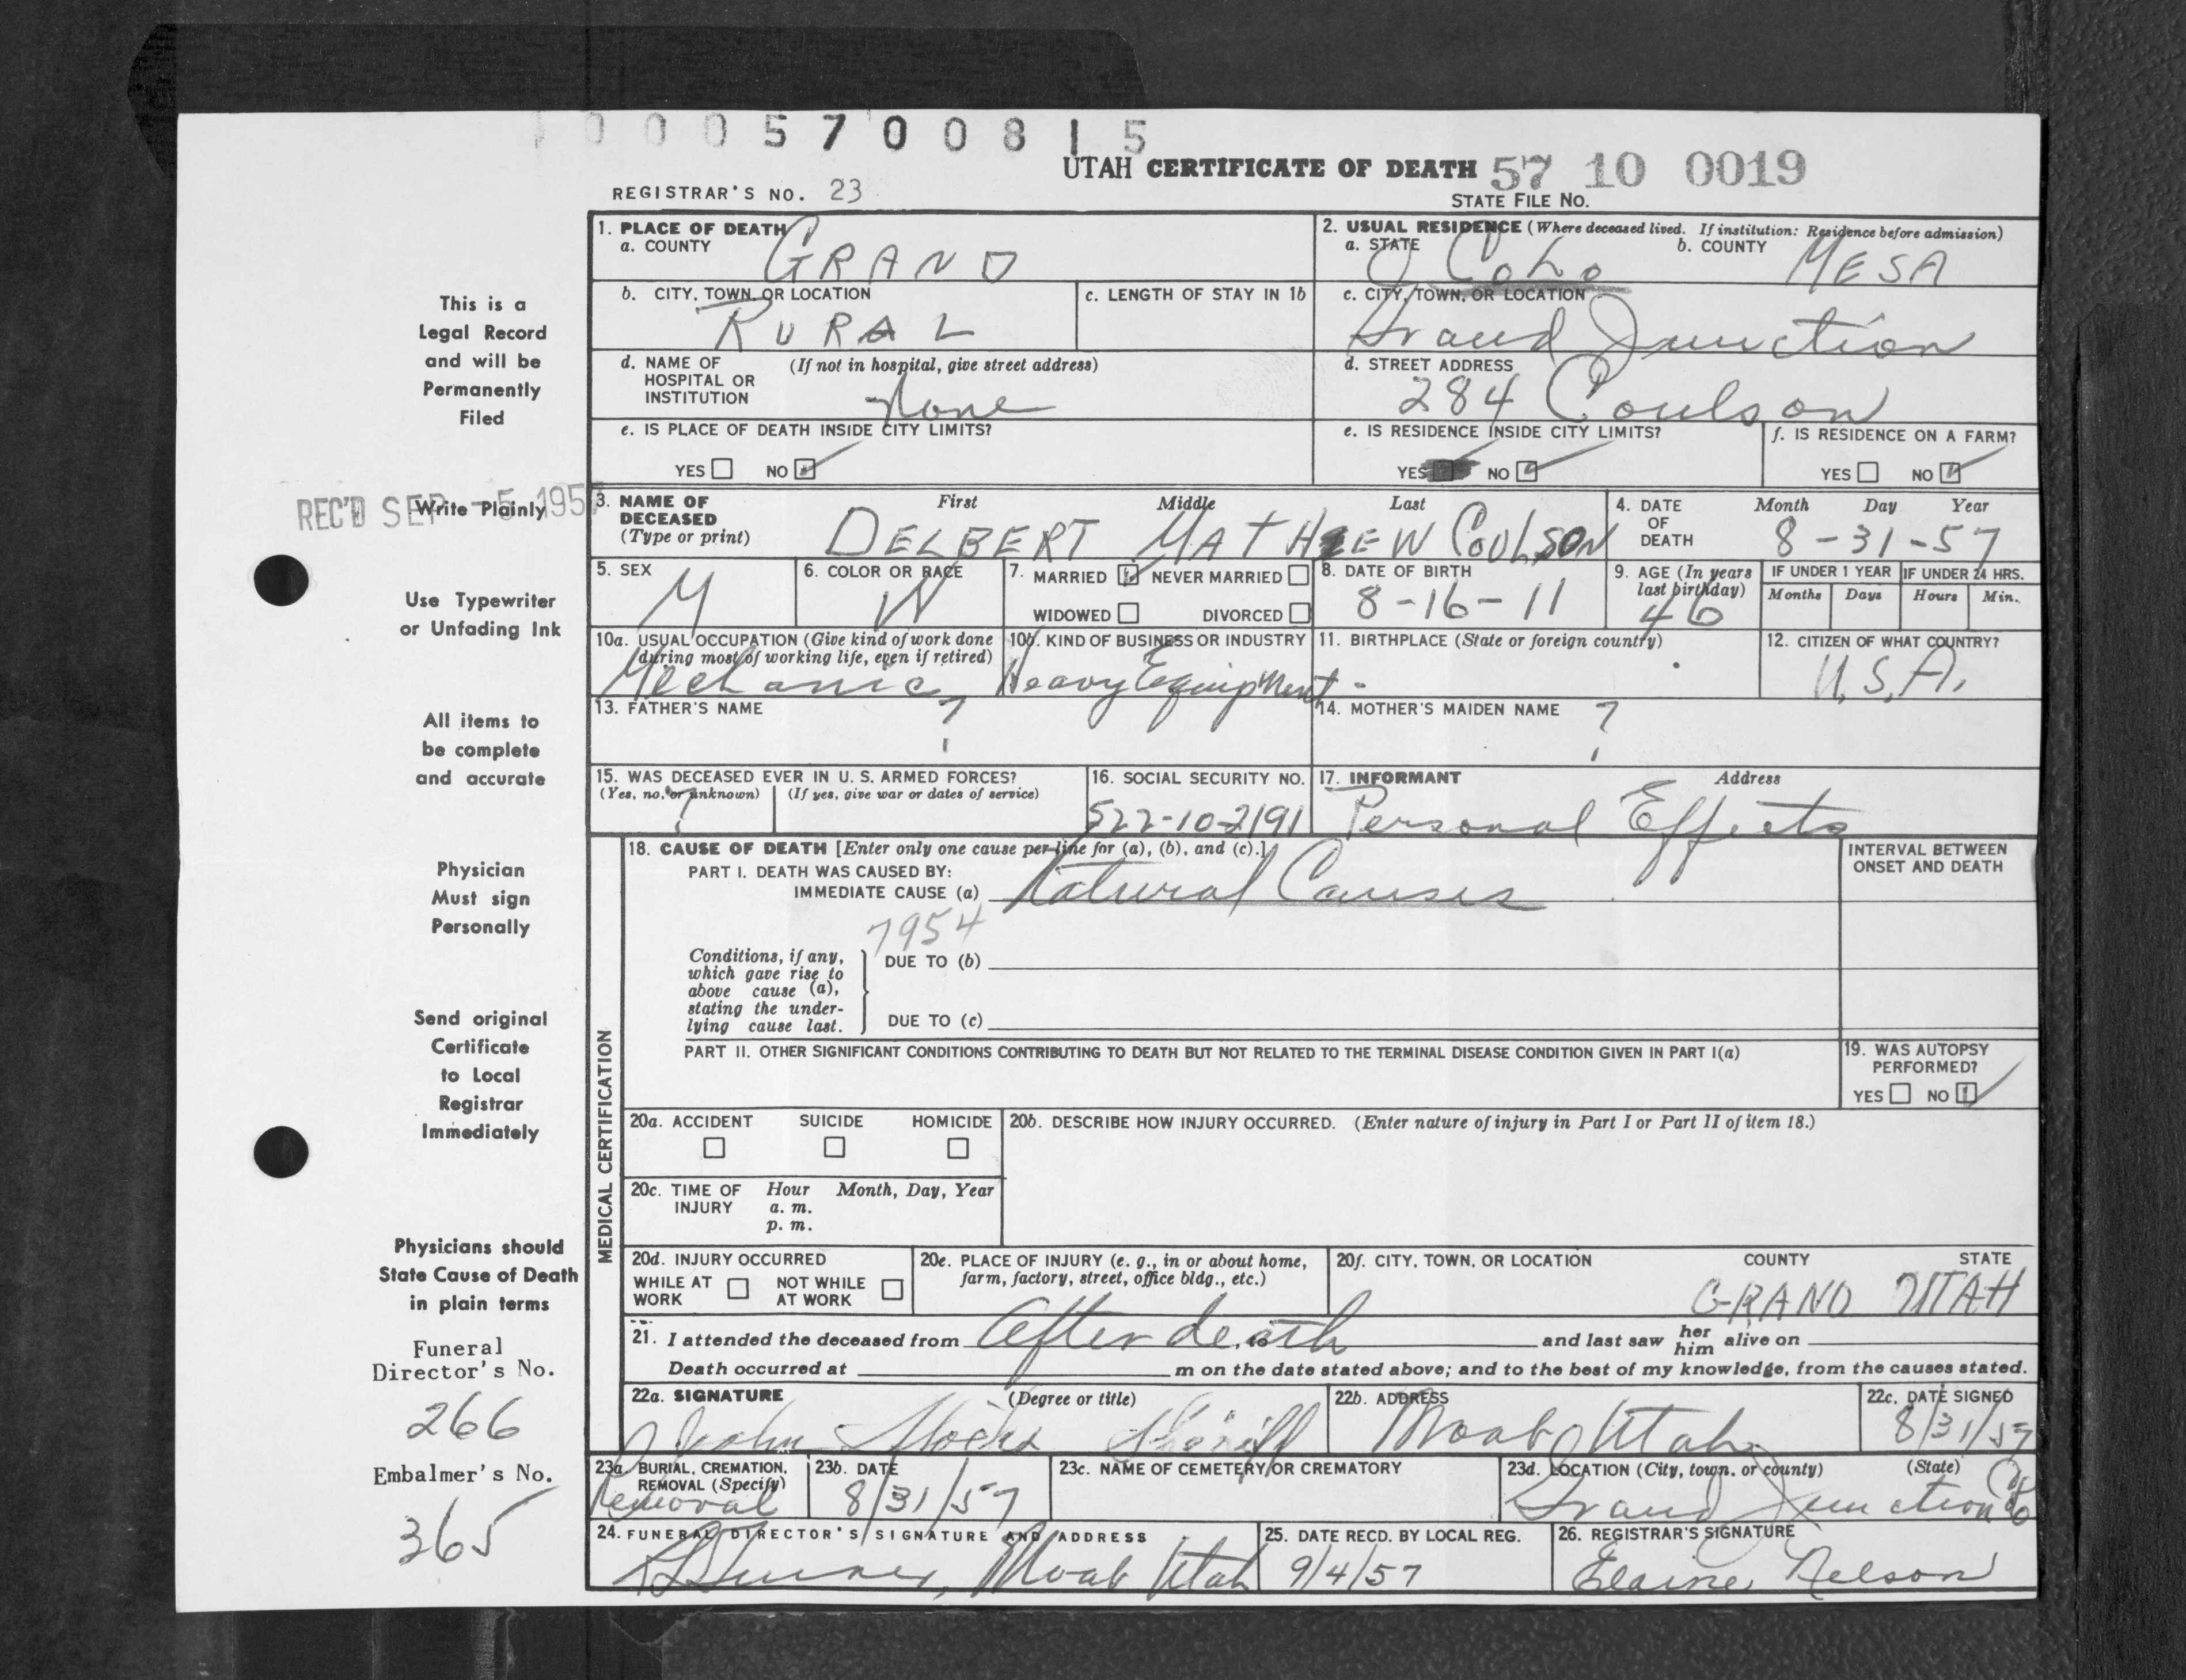 0 0 0 5 7 0 0 8 1 5
UTAH CERTIFICATE OF DEATH 57 10 0019
REGISTRAR'S NO. 23
STATE FILE NO.
This is a
Legal Record
and will be
Permanently
Filed
REC'D SEP -5 195
Write Plainly
Use Typewriter
or Unfading Ink
All items to
be complete
and accurate
Physician
Must sign
Personally
Send original
Certificate
to Local
Registrar
Immediately
Physicians should
State Cause of Death
in plain terms
Funeral
Director's No.
266
Embalmer's No.
365
1. PLACE OF DEATH
a. COUNTY GRAND
2. USUAL RESIDENCE (Where deceased lived. If institution: Residence before admission)
a. STATE Colo b. COUNTY MESA
b. CITY, TOWN, OR LOCATION
RURAL
c. LENGTH OF STAY IN 1b
c. CITY, TOWN, OR LOCATION
Grand Junction
d. NAME OF (If not in hospital, give street address)
HOSPITAL OR
INSTITUTION None
d. STREET ADDRESS
284 Coulson
e. IS PLACE OF DEATH INSIDE CITY LIMITS?
YES NO
e. IS RESIDENCE INSIDE CITY LIMITS?
YES NO
f. IS RESIDENCE ON A FARM?
YES NO
3. NAME OF First Middle Last
DECEASED
(Type or print) DELBERT MATHEW COULSON
4. DATE Month Day Year
OF
DEATH 8-31-57
5. SEX
M
6. COLOR OR RACE
W
7. MARRIED NEVER MARRIED
WIDOWED DIVORCED
8. DATE OF BIRTH
8-16-11
9. AGE (In years
last birthday)
46
IF UNDER 1 YEAR IF UNDER 24 HRS.
Months Days Hours Min.
10a. USUAL OCCUPATION (Give kind of work done
during most of working life, even if retired)
Mechanic
10b. KIND OF BUSINESS OR INDUSTRY
Heavy Equipment
11. BIRTHPLACE (State or foreign country)
-
12. CITIZEN OF WHAT COUNTRY?
U.S.A.
13. FATHER'S NAME ?
14. MOTHER'S MAIDEN NAME ?
15. WAS DECEASED EVER IN U. S. ARMED FORCES?
(Yes, no, or unknown) (If yes, give war or dates of service)
?
16. SOCIAL SECURITY NO.
522-10-2191
17. INFORMANT Address
Personal Effects
MEDICAL CERTIFICATION
18. CAUSE OF DEATH [Enter only one cause per line for (a), (b), and (c).]
PART I. DEATH WAS CAUSED BY:
IMMEDIATE CAUSE (a) Natural Causes
INTERVAL BETWEEN
ONSET AND DEATH
7954
Conditions, if any,
which gave rise to
above cause (a),
stating the under-
lying cause last.
DUE TO (b)
DUE TO (c)
PART II. OTHER SIGNIFICANT CONDITIONS CONTRIBUTING TO DEATH BUT NOT RELATED TO THE TERMINAL DISEASE CONDITION GIVEN IN PART I(a)
19. WAS AUTOPSY
PERFORMED?
YES NO
20a. ACCIDENT SUICIDE HOMICIDE
20b. DESCRIBE HOW INJURY OCCURRED. (Enter nature of injury in Part I or Part II of item 18.)
20c. TIME OF Hour Month, Day, Year
INJURY a. m.
p. m.
20d. INJURY OCCURRED
WHILE AT NOT WHILE
WORK AT WORK
20e. PLACE OF INJURY (e. g., in or about home,
farm, factory, street, office bldg., etc.)
20f. CITY, TOWN, OR LOCATION COUNTY STATE
GRAND UTAH
21. I attended the deceased from After death to and last saw her him alive on
Death occurred at m on the date stated above; and to the best of my knowledge, from the causes stated.
22a. SIGNATURE (Degree or title)
John Stocks Sheriff
22b. ADDRESS
Moab Utah
22c. DATE SIGNED
8/31/57
23a BURIAL, CREMATION,
REMOVAL (Specify)
Removal
23b. DATE
8/31/57
23c. NAME OF CEMETERY OR CREMATORY
23d. LOCATION (City, town, or county) (State)
Grand Junction Colo
24. FUNERAL DIRECTOR'S SIGNATURE AND ADDRESS
Moab Utah
25. DATE RECD. BY LOCAL REG.
9/4/57
26. REGISTRAR'S SIGNATURE
Elaine Nelson